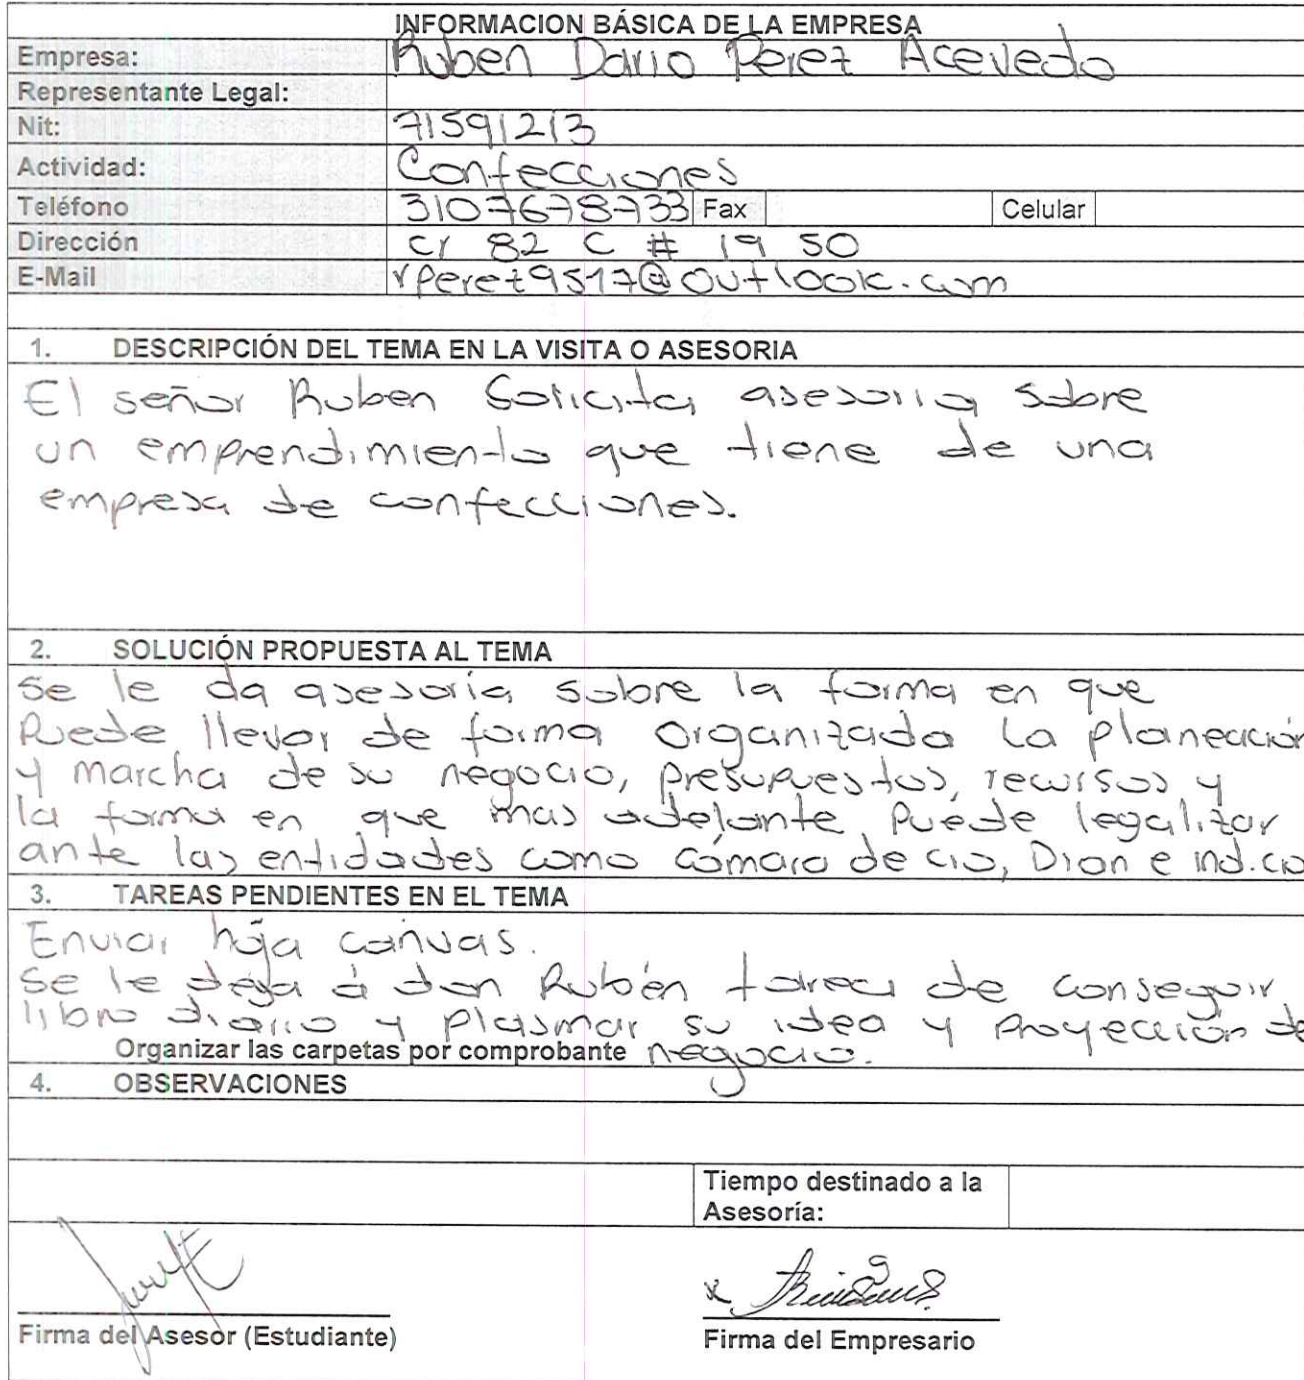 INFORMACION BÁSICA DE LA EMPRESA
Empresa: Ruben Dario Perez Acevedo
Representante Legal:
Nit: 71591213
Actividad: Confecciones
Teléfono 3107678733 Fax Celular
Dirección cr 82 C # 19 50
E-Mail rperez9517@outlook.com
1. DESCRIPCIÓN DEL TEMA EN LA VISITA O ASESORIA
El señor Ruben Solicita asesoria sobre
un emprendimiento que tiene de una
empresa de confecciones.
2. SOLUCIÓN PROPUESTA AL TEMA
se le da asesoria sobre la forma en que
Puede llevar de forma organizada la planeación
y marcha de su negocio, presupuestos, recursos y
la forma en que mas adelante puede legalizar
ante las entidades como cámara de cio, Dian e ind.cio
3. TAREAS PENDIENTES EN EL TEMA
Enviar hoja canvas.
Se le deja a don Rubén tarea de conseguir
libro diario y plasmar su idea y proyección de
Organizar las carpetas por comprobante negocio.
4. OBSERVACIONES
Tiempo destinado a la
Asesoría:
Firma del Asesor (Estudiante) Firma del Empresario